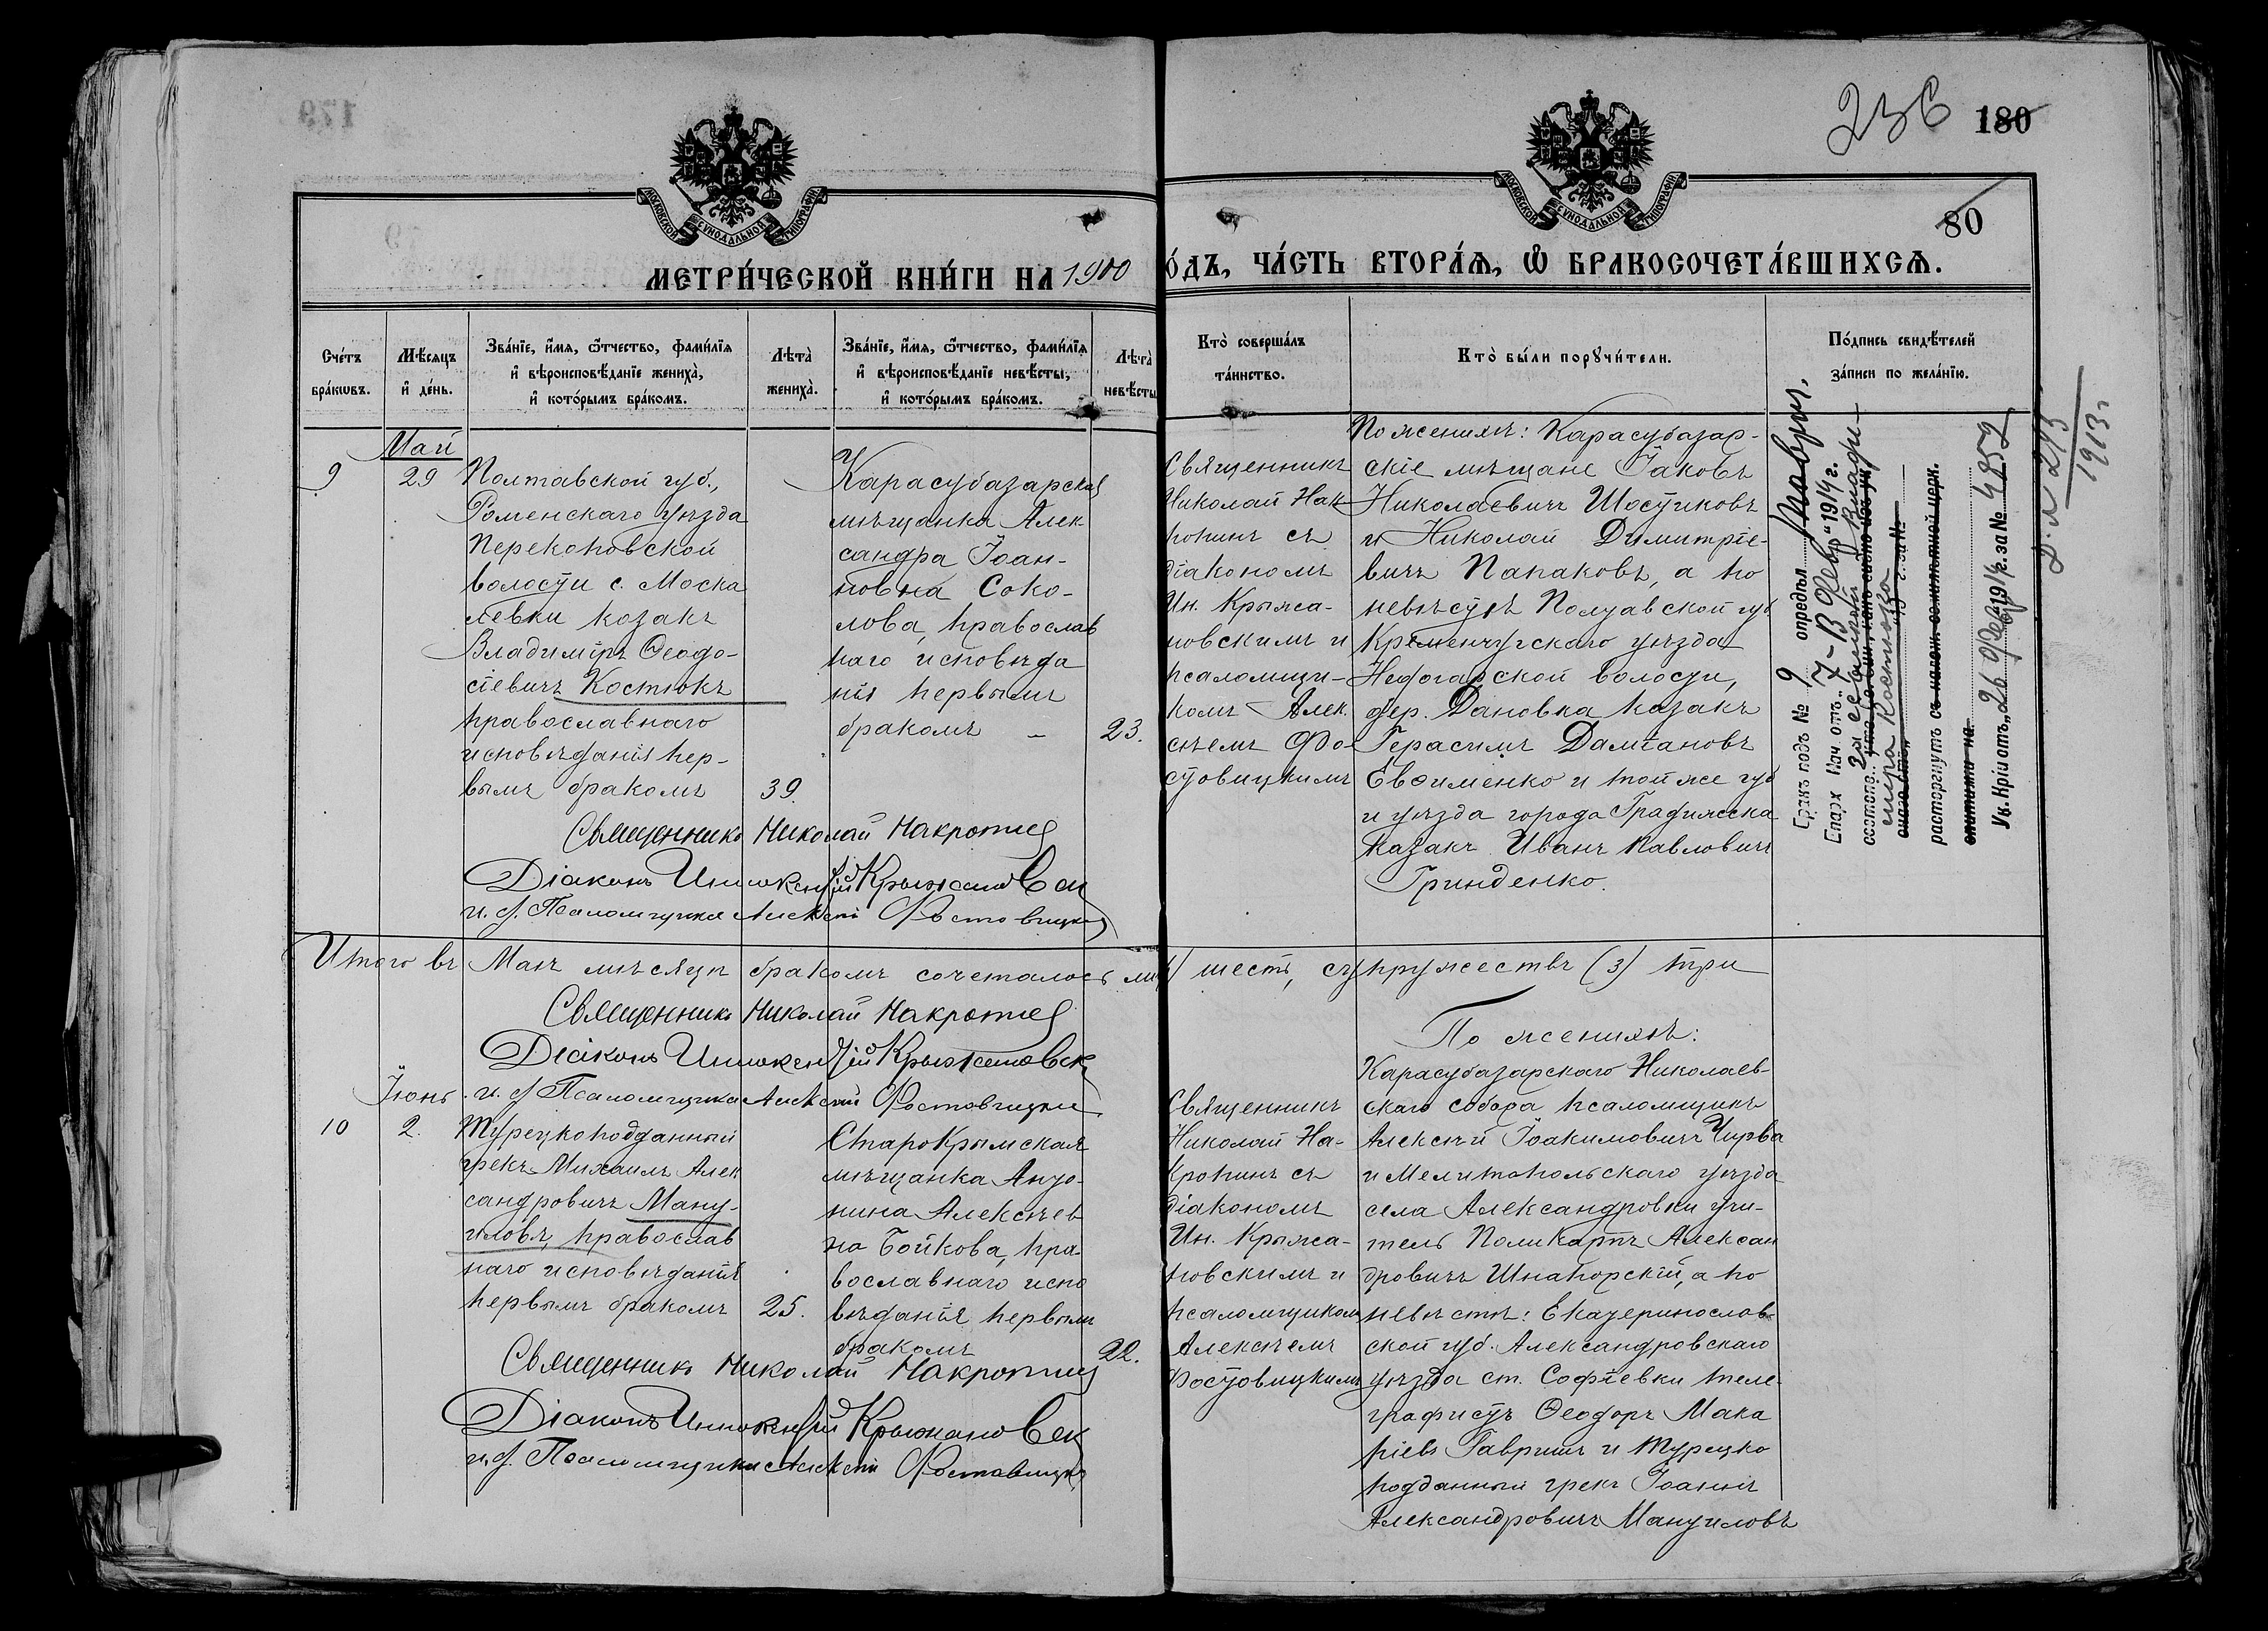 236 180
80
МОСКОВСКОЙ СѴНОДАЛЬНОЙ ТИПОГРАФІИ
МОСКОВСКОЙ СѴНОДАЛЬНОЙ ТИПОГРАФІИ
МЕТРИ́ЧЕСКОЙ КНИ́ГИ НА 1900
О́ДЪ, ЧА́СТЬ ВТОРА́Я, Ѡ БРАКОСОЧЕТА́ВШИХСЯ.
Сче́тъ
бра́кѡвъ.
Мѣ́сяцъ
и҆ де́нь.
Зва́нїе, и҆́мя, ѻ҆́тчество, фами́лїя
и҆ вѣроисповѣ́данїе жениха̀,
и҆ кото́рымъ бра́комъ.
Лѣта̀
жениха̀.
Зва́нїе, и҆́мя, ѻ҆́тчество, фами́лїя
и҆ вѣроисповѣ́данїе невѣ́сты,
и҆ кото́рымъ бра́комъ.
Лѣта̀
невѣ́сты
Кто̀ соверша́лъ
та́инство.
Кто̀ бы́ли порꙋчи́тели.
По́дпись свидѣ́телей
за́писи по жела́нїю.
Май
9
29
Полтавской губ.,
Роменскаго уѣзда
Перекоповской
волости с. Моска
левки козакъ
Владиміръ Ѳеодо-
сіевичъ Костюкъ
православнаго
исповѣданія пер-
вымъ бракомъ
39.
Карасубазарская
мѣщанка Алек
сандра Іоан-
новна Соко-
лова, православ
наго исповѣда
нія первымъ
бракомъ –
23.
Священникъ
Николай Нак
ропинъ съ
діакономъ
Ин. Крыжа-
новскимъ и
псаломщи-
комъ Алек.
сѣемъ Фо-
стовицкимъ
По женихѣ: Карасубазар-
скіе мѣщане Іаковъ
Николаевичъ Шостиковъ
и Николай Димитріе-
вичъ Папаковъ, а по
невѣстѣ Полтавской губ
Кременчугскаго уѣзда
волости,
дер. Дановка казакъ
Герасимъ Даміановъ
Евѳименко и той же губ
и уѣзда города Градижска
казакъ Иванъ Павловичъ
Гринденко.
Бракъ подъ № 9 опредѣл. Таврич.
Епарх. Нач. отъ „7–13 Февр“ 1914 г.
расторгнутъ съ налож. семилѣтной церк.
епитиміи на
Ук. Кр҃і отъ „26 Февр“ 1914 г. за № 4852
Д. № 293
1913 г
Священникъ Николай Накропинъ
Діаконъ Иннокентій Крыжановск
и. д. Псаломщика Алексѣй Фостовицкій
Итого въ Маѣ мѣсяцѣ бракомъ сочеталось ли
) шесть, супружествъ (3) три
Священникъ Николай Накропинъ
Діаконъ Иннокентій Крыжановск
и. д. Псаломщика Алексѣй Фостовицкій
Іюнь
10
2.
Турецкоподданный
грекъ Михаилъ Алек
сандровичъ Ману-
иловъ, православ
наго исповѣданія
первымъ бракомъ
25.
СтароКрымская
мѣщанка Анто-
нина Алексѣев
на Бойкова, пра-
вославнаго испо
вѣданія первымъ
бракомъ
22.
Священникъ
Николай На-
кропинъ съ
діакономъ
Ин. Крыжа-
новскимъ и
псаломщикомъ
Алексѣемъ
Фостовицкимъ
По женихѣ:
Карасубазарскаго Николаев-
скаго собора псаломщикъ
Алексѣй Іоакимовичъ Чирва
и Мелитопольскаго уѣзда
села Александровки учи-
тель Поликарпъ Алексан
дровичъ Шнапорскій, а по
невѣстѣ: Екатеринослав-
ской губ. Александровскаго
уѣзда ст. Софіевки теле-
графистъ Ѳеодоръ Мака
ріевъ Гавришъ и Турецко
подданный грекъ Іоаннъ
Александровичъ Мануиловъ
Священникъ Николай Накропинъ
Діаконъ Иннокентій Крыжановск
и. д. Псаломщика Алексѣй Фостовицкій